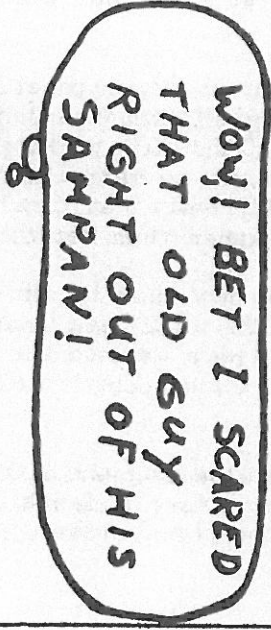 WOW! BET I SCARED
THAT OLD GUY
RIGHT OUT OF HIS
SAMPAN!